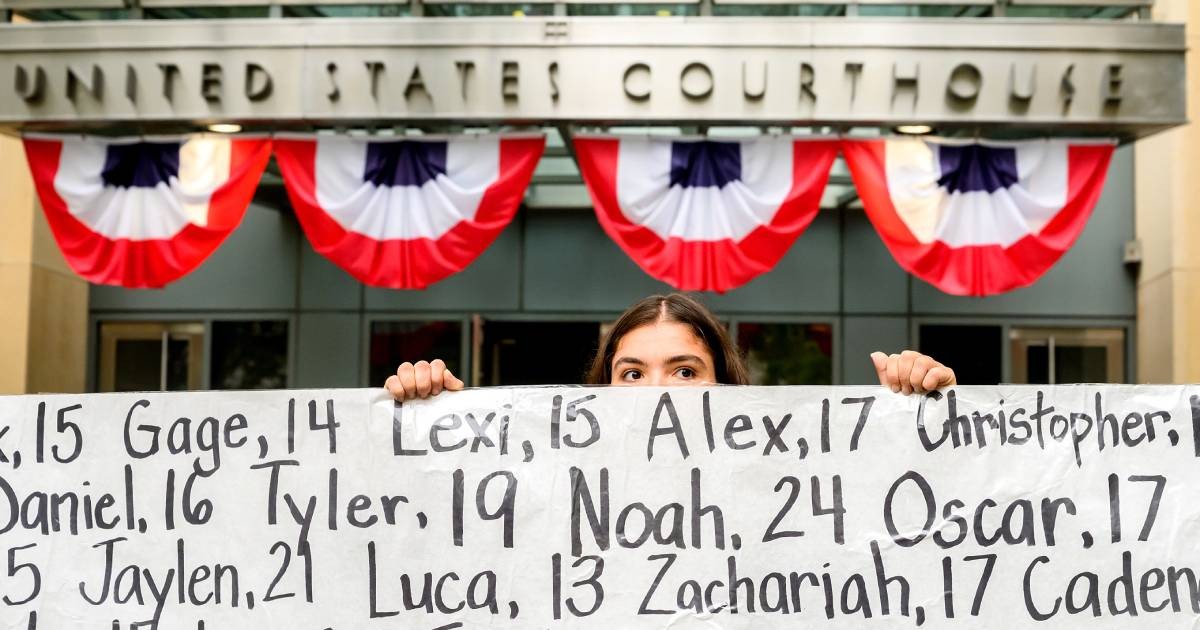 UNITED STATES COURTHOUSE
15 Gage, 14 Lexi, 15 Alex, 17 Christopher,
Daniel, 16 Tyler, 19 Noah, 24 Oscar, 17
5 Jaylen, 21 Luca, 13 Zachariah, 17 Caden